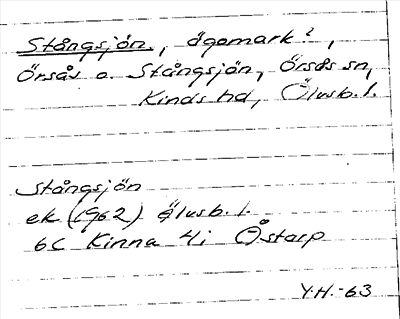 Stångsjön, ägomark?,
Örsås o. Stångsjön, Örsås sn,
Kinds hd, Älvsb. l.
Stångsjön
ek (1962) Älvsb. l.
6C Kinna 4i Östarp
Y.H.-63